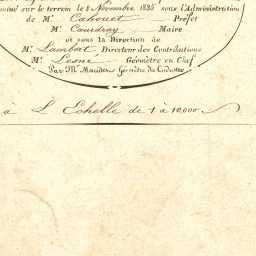 miné sur le terrein le 8 Novembre 1835 sous l'Administration
de Mr. Cahouet Préfet
Mr. Coudray Maire
et sous la Direction de
Mr. Lambat, Directeur des Contributions
Mr. Lesne Géomètre en Chef
Par Mr. Maudet Géomètre du Cadastre
à L'Echelle de 1 à 10,000.